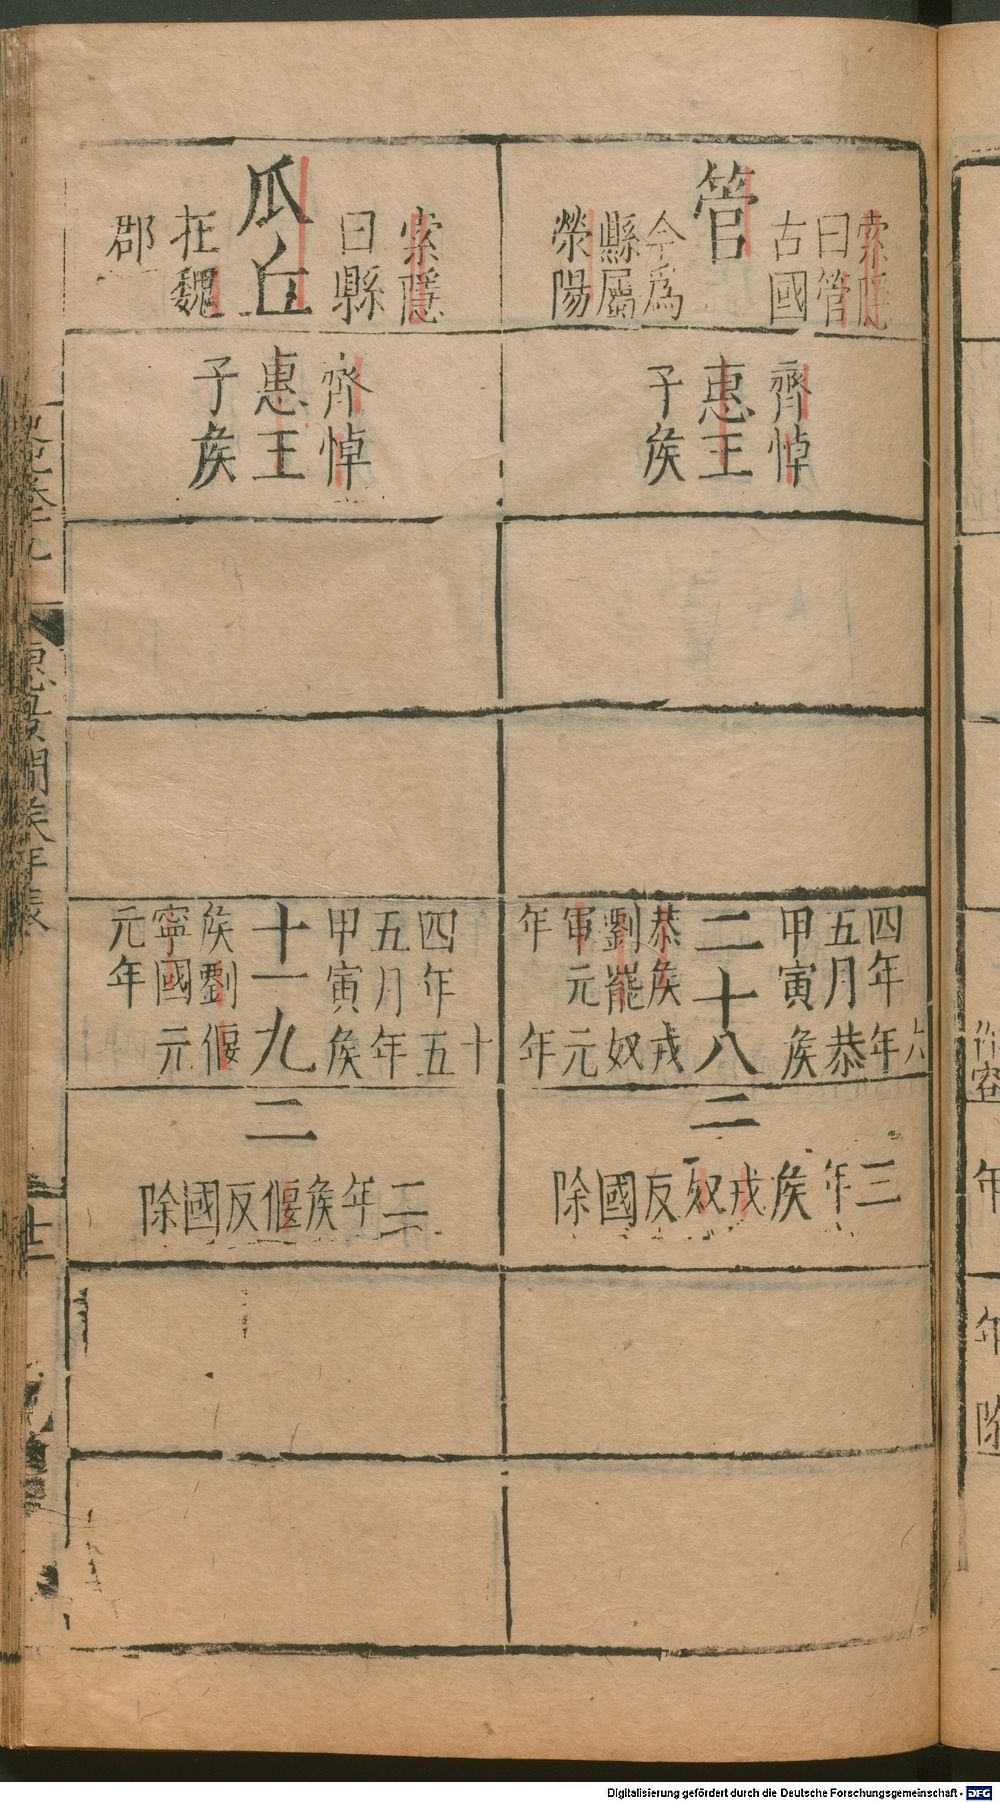 索隱
曰管
古國
管
今爲
縣屬
滎陽
齊悼
惠王
子矦
六
四年年
五月恭
甲寅矦
二十八
恭矦戎
劉罷奴
軍元元
年年
二
三年矦戎奴反國除
索隱
曰縣
瓜丘
在魏
郡
齊悼
惠王
子矦
十
四年五
五月年
甲寅矦
十一九
矦劉偃
寧國元
元年
二
三年矦偃反國除
惠景間矦年表
Digitalisierung gefördert durch die Deutsche Forschungsgemeinschaft - DFG